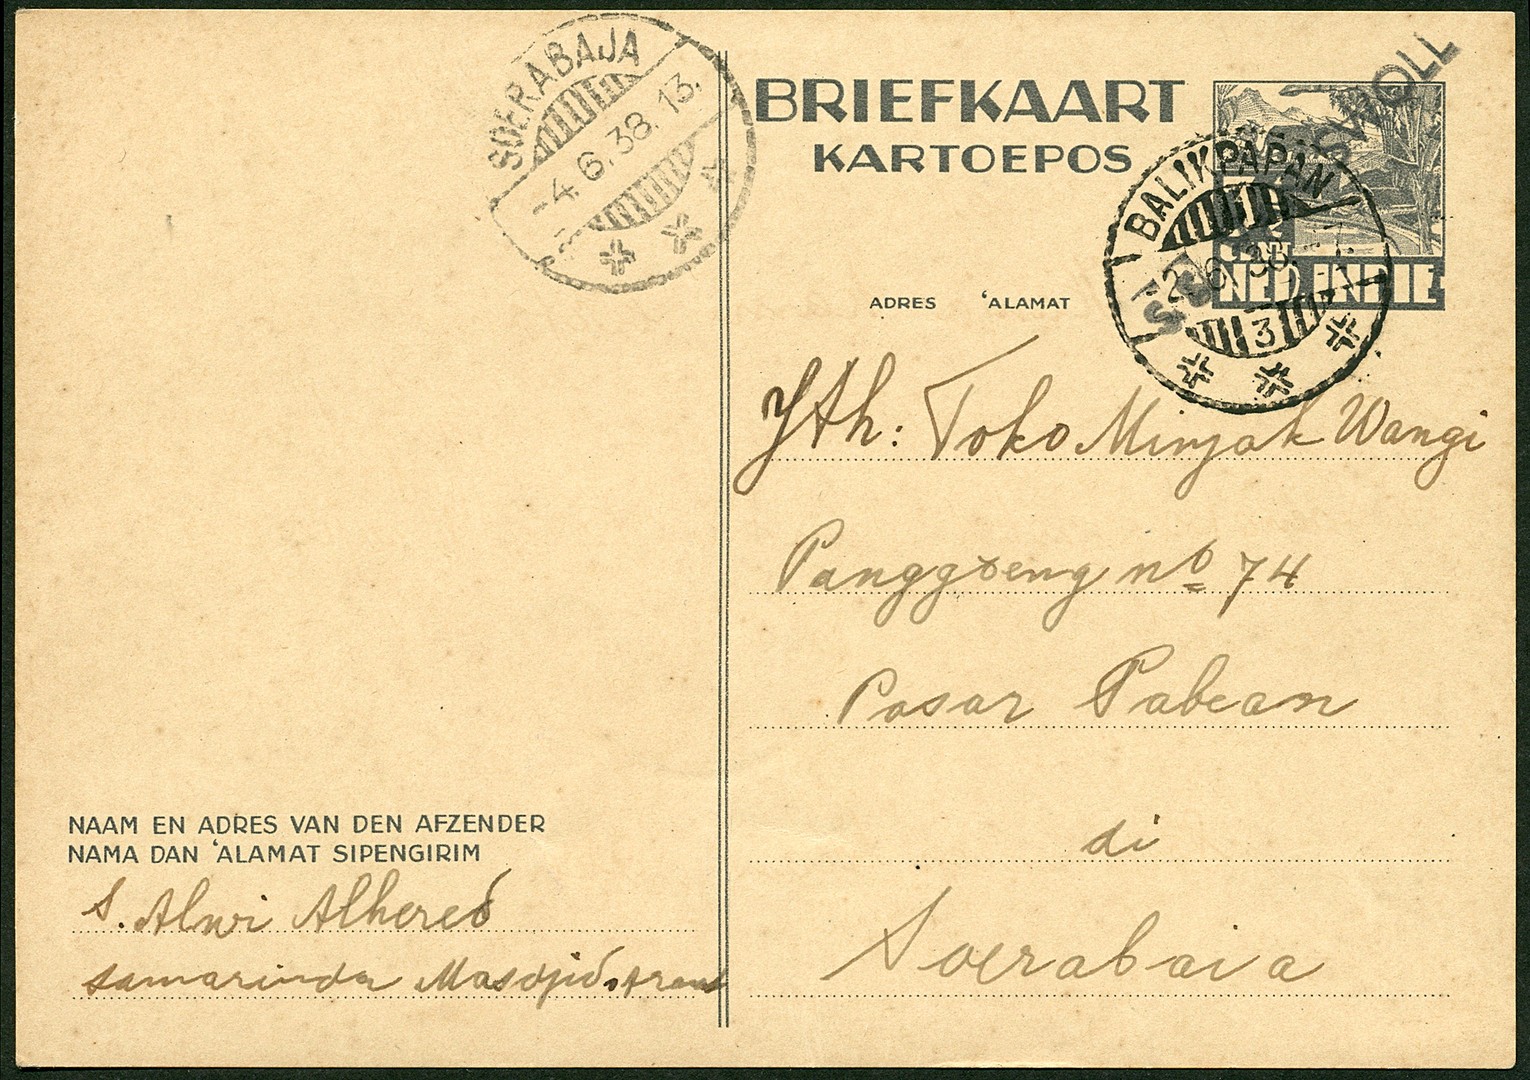 SOERABAJA
-4.6.38.13.
BRIEFKAART
KARTOEPOS
BALIKPAPAN
3
NED. INDIE
ADRES 'ALAMAT
Yth: Toko Minjak Wangi
Panggoeng no 74
Pasar Pabean
di
Soerabaia
NAAM EN ADRES VAN DEN AFZENDER
NAMA DAN 'ALAMAT SIPENGIRIM
S. Alwi Alhered
Samarinda Masdjid